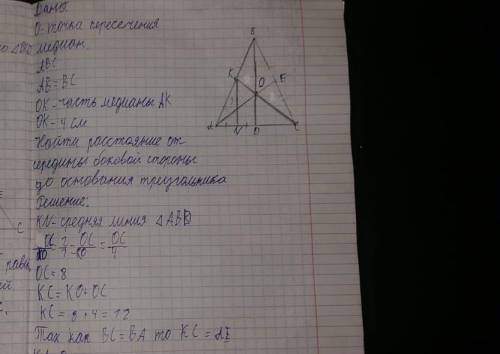 Даны
О-точка пересечения
медиан
АВС
АВ=ВС
ОК-часть медианы АК
ОК-4 см
Найти расстояние от
середины боковой стороны
до основания треугольника
Решение:
KN-средняя линия △ABD
OC = 8
KC = KO+OC
KC = 8+4=12
Так как BC=BA то KC=AE
B
K
O
E
A
N
D
C
C